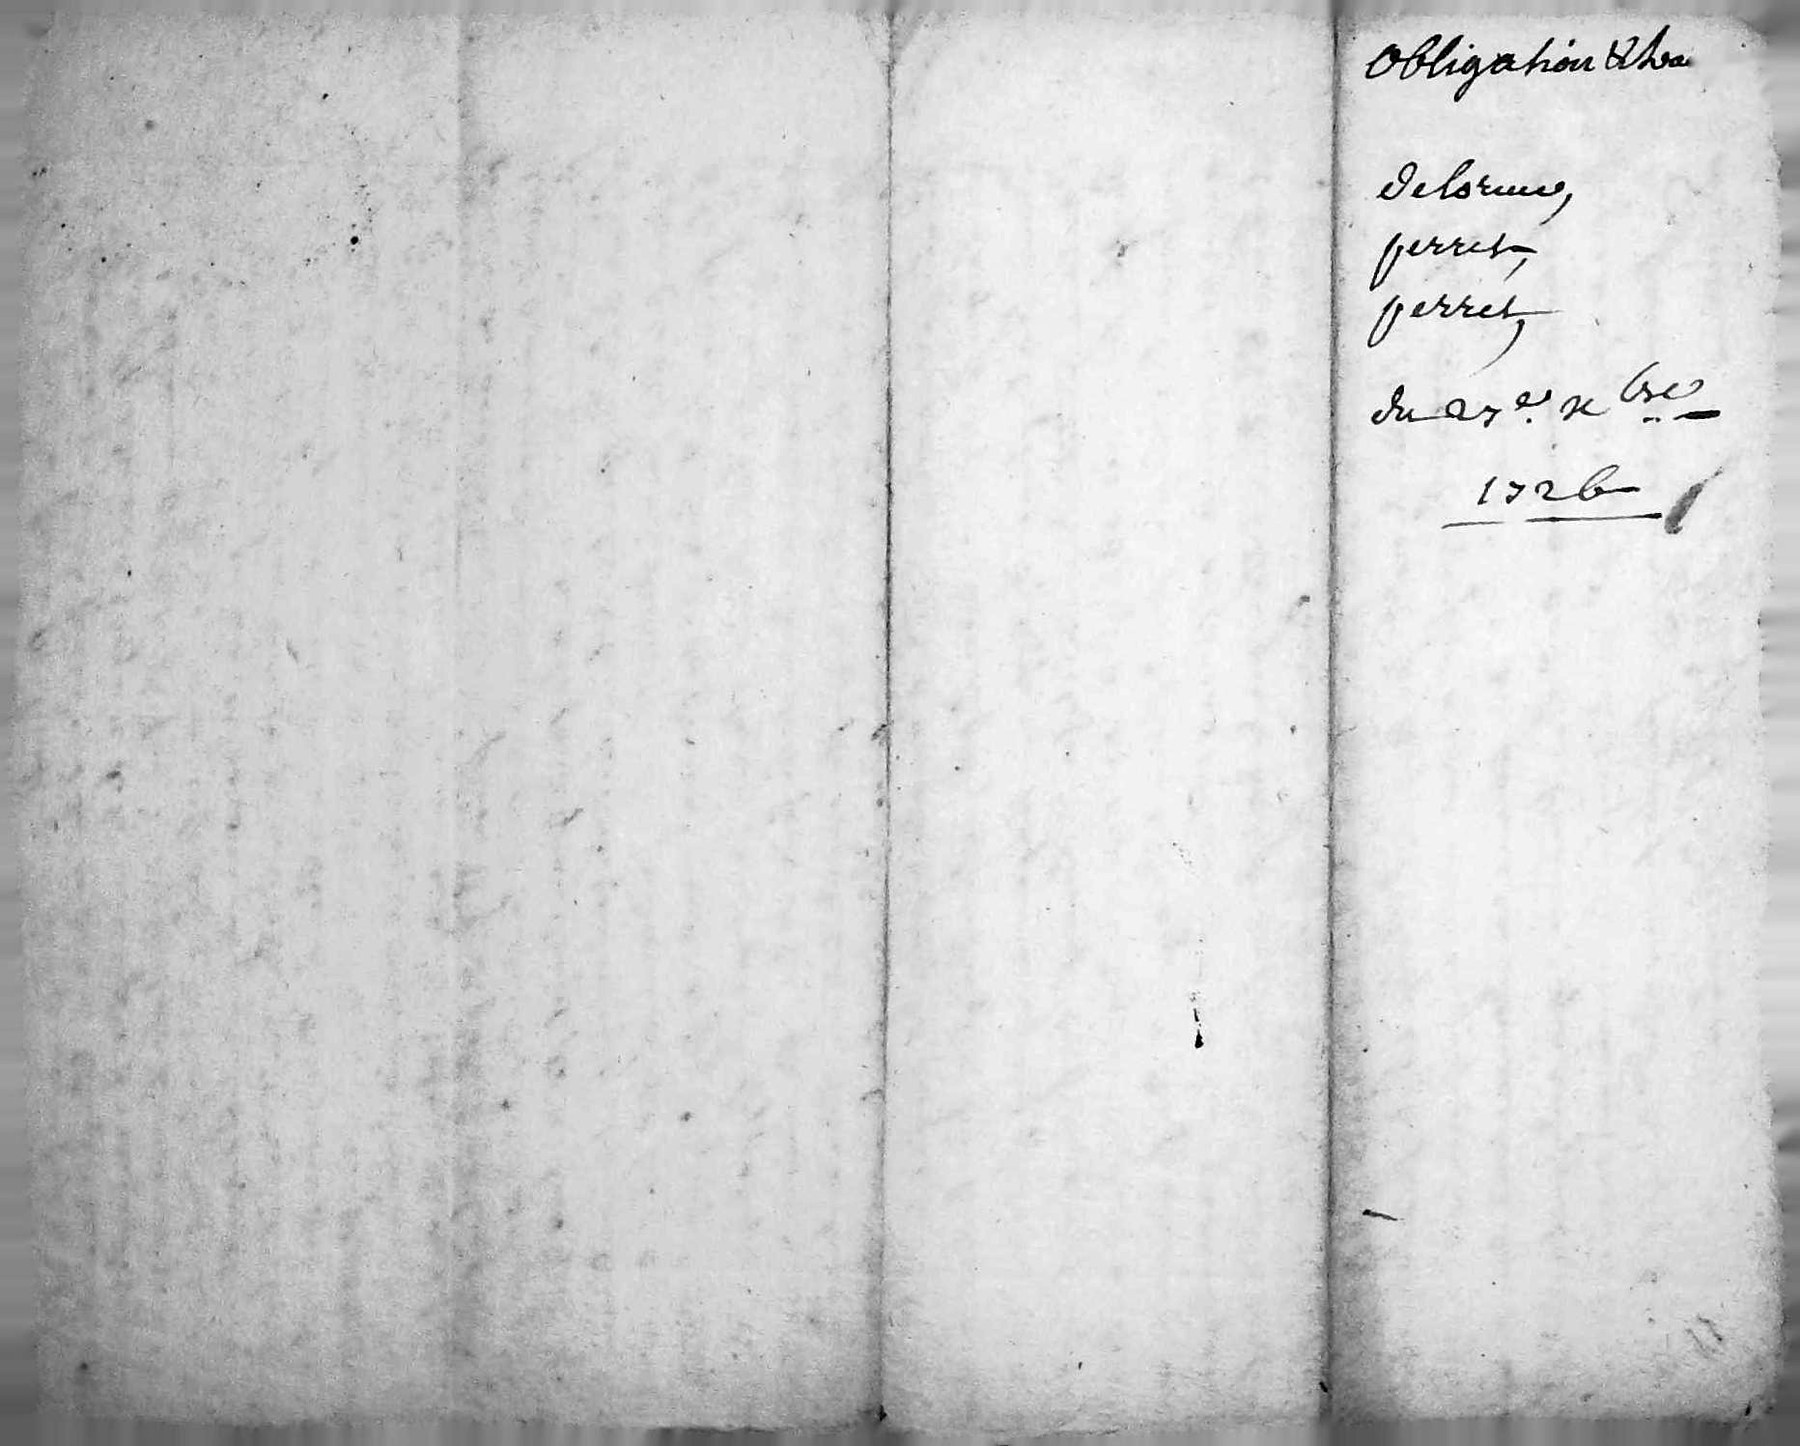 Obligation
delorme,
perret,
perret,
du 27e. xbre
1726